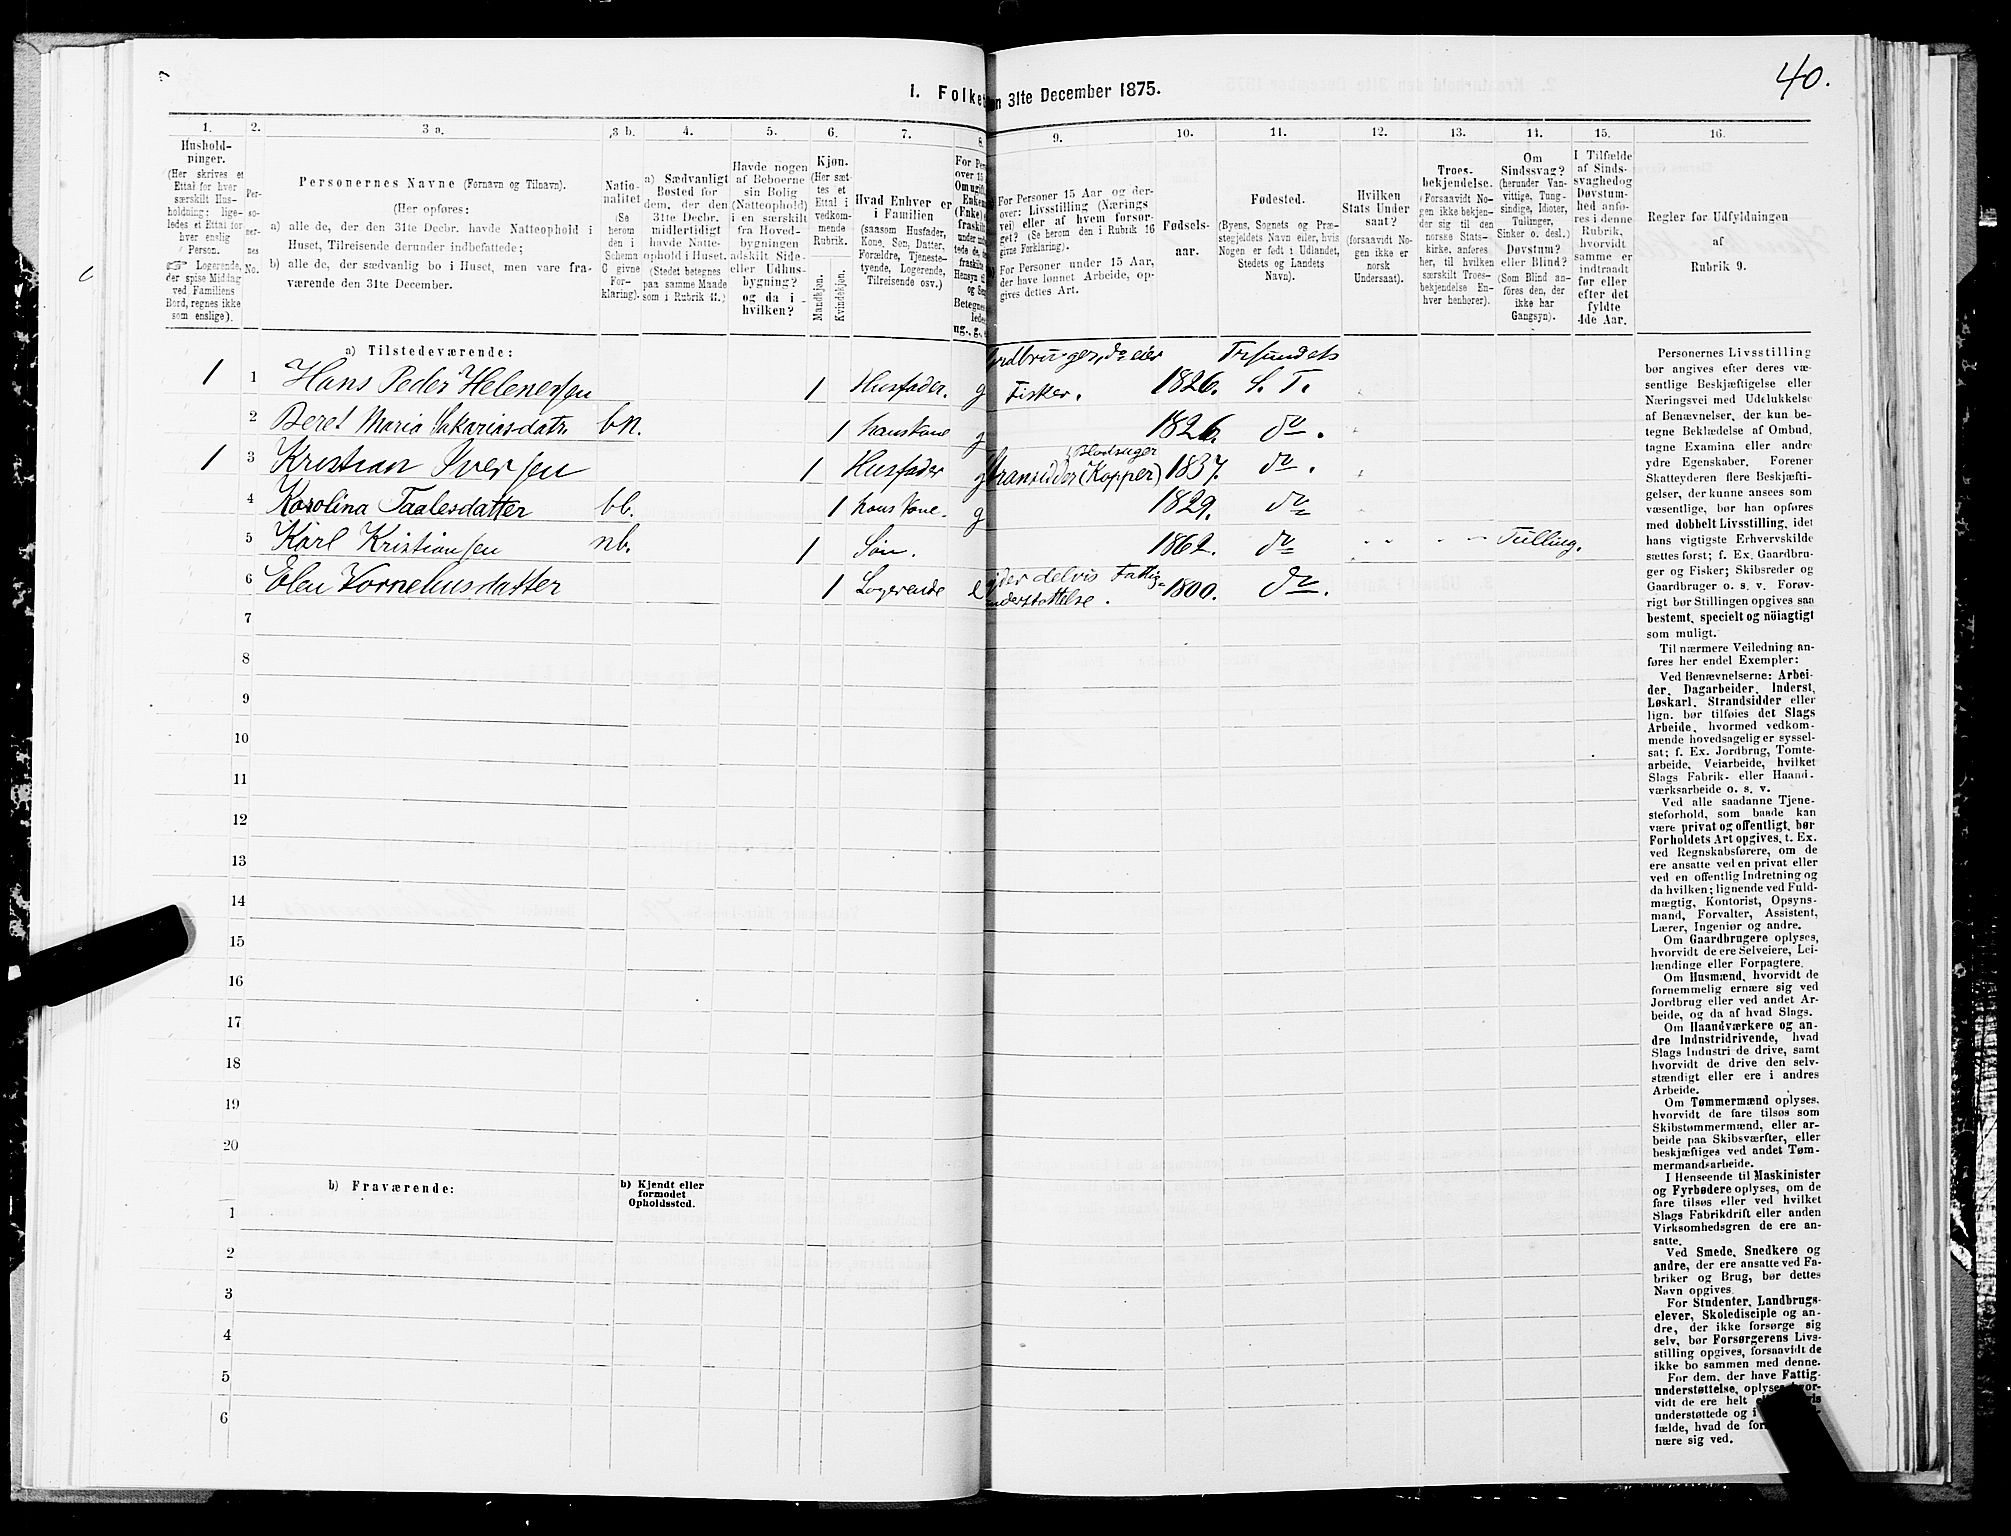 40.
1. Folket
n 31te December 1875.
1. 2. 3 a. 3 b. 4. 5. 6. 7. 8. 9. 10. 11. 12. 13. 14. 15. 16.
Hushold-
ninger.
(Her skrives et
Ettal for hver
særskilt Hus-
holdning; lige-
ledes et Ettal for
hver enslig
Person.
☞ Logerende,
der spise Middag
ved Familiens
Bord, regnes ikke
som enslige).
Per-
so-
ner-
nes
No.
Personernes Navne (Fornavn og Tilnavn).
(Her opføres:
a) alle de, der den 31te Decbr. havde Natteophold i
Huset, Tilreisende derunder indbefattede;
b) alle de, der sædvanlig bo i Huset, men vare fra-
værende den 31te December.
Natio-
nalitet
(Se
herom
den i
Schema
G givne
For-
klaring).
a) Sædvanligt
Bosted for
dem, der den
31te Decbr.
midlertidigt
havde Natte-
ophold i Huset.
(Stedet betegnes
paa samme Maade
som i Rubrik 11.)
Havde nogen
af Beboerne
sin Bolig
(Natteophold)
i en særskilt
fra Hoved-
bygningen
adskilt Side-
eller Udhus-
bygning?
og da i
hvilken?
Kjøn.
(Her sæt-
tes et
Ettal i
vedkom-
mende
Rubrik.
Mandkjøn.
Kvindekjøn.
Hvad Enhver er
i Familien
(saasom Husfader,
Kone, Søn, Datter,
Forældre, Tjeneste-
tyende, Logerende,
Tilreisende osv.)
For Per
over 15
Om ugift,
Enken
(Fnke)
fraskilt
ug., g., e
For Personer 15 Aar og der-
over: Livsstilling (Nærings
vei) eller af hvem forsør-
get? (Se herom den i Rubrik 16
givne Førklaring).
For Personer under 15 Aar,
der have lønnet Arbeide, op-
gives dettes Art.
Fødsels-
aar.
Fødested.
(Byens, Sognets og Præ-
stegjeldets Navn eller, hvis
Nogen er født i Udlandet,
Stedets og Landets
Navn).
Hvilken
Stats Under
saat?
(forsaavidt No-
gen ikke er
norsk
Undersaat).
Troes-
bekjendelse.
(Forsaavidt No-
gen ikke bekjen-
der sig til den
norske Stats-
kirke, anføres
her, til hvilken
særskilt Troes-
bekjendelse En-
hver henhører).
Om
Sindssvag?
(herunder Van-
vittige, Tung-
sindige, Idioter,
Tullinger,
Sinker o. desl.)
Døvstum?
eller Blind?
(Som Blind an-
føres den, der
ikke har
Gangsyn).
I Tilfælde
af Sinds-
svaghed og
Døvstum-
hed anfø-
res i denne
Rubrik,
hvorvidt
samme er
indtraadt
før eller
efter det
fyldte
4de Aar.
Regler for Udfyldningen
af
Rubrik 9.
a) Tilstedeværende:
1 1 Hans Peder Helenessen 1 Husfader. g Jordbruger, do eier Fisker. 1826. Trsundets S. T.
2 Beret Maria Sakariasdatr. bn. 1 hans Kone g 1826. do.
1 3 Kristian Iversen 1 Husfader g Stransidder (Blodsuger Kopper) 1837. do.
4 Karolina Taalesdatter bb. 1 hans Kone. g 1829. do
5 Karl Kristiansen nb. 1 Søn. 1862. do Tulling.
6 Elen Korneliusdatter 1 Logerende e nyder delvis Fattig= understøttelse. 1800. do.
7
8
9
10
11
12
13
14
15
16
17
18
19
20
b) Fraværende:
b) Kjendt eller
formodet
Opholdssted.
1
2
3
4
5
6
Personernes Livsstilling
bør angives efter deres væ-
sentlige Beskjæftigelse eller
Næringsvei med Udelukkelse
af Benævnelser, der kun be-
tegne Beklædelse af Ombud,
tagne Examina eller andre
ydre Egenskaber. Forener
Skatteyderen flere Beskjæfti-
gelser, der kunne ansees som
væsentlige, bør han opføres
med dobbelt Livsstilling, idet
hans vigtigste Erhvervskilde
sættes først; f. Ex. Gaardbru-
ger og Fisker; Skibsreder og
Gaardbruger o. s. v. Forøv-
rigt bør Stillingen opgives saa
bestemt, specielt og nöiagtigt
som muligt.
Til nærmere Veiledning an-
føres her endel Exempler:
Ved Benævnelserne: Arbei-
der, Dagarbeider, Inderst,
Løskarl, Strandsidder eller
lign. bør tilføies det Slags
Arbeide, hvormed vedkom-
mende hovedsagelig er syssel-
sat; f. Ex. Jordbrug, Tomte-
arbeide, Veiarbeide, hvilket
Slags Fabrik- eller Haand-
værksarbeide o. s. v.
Ved alle saadanne Tjene-
steforhold, som baade kan
være privat og offentligt, bør
Forholdets Art opgives, t. Ex.
ved Regnskabsførere, om de
ere ansatte ved en privat eller
ved en offentlig Indretning og
da hvilken; lignende ved Fuld-
mægtig, Kontorist, Opsyns-
mand, Forvalter, Assistent,
Lærer, Ingeniør og andre.
Om Gaardbrugere oplyses,
hvorvidt de ere Selveiere, Lei-
lændinge eller Forpagtere.
Om Husmænd, hvorvidt de
fornemmelig ernære sig ved
Jordbrug eller ved andet Ar-
beide, og da af hvad Slags.
Om Haandværkere og an-
dre Industridrivende, hvad
Slags Industri de drive, samt
hvorvidt de drive den selv-
stændigt eller ere i andres
Arbeide.
Om Tømmermænd oplyses,
hvorvidt de fare tilsøs som
Skibstømmermænd, eller ar-
beide paa Skibsværfter, eller
beskjæftiges ved andet Tøm-
mermandsarbeide.
I Henseende til Maskinister
og Fyrbødere oplyses, om de
fare tilsøs eller ved hvilket
Slags Fabrikdrift eller anden
Virksomhedsgren de ere an-
satte.
Ved Smede, Snedkere og
andre, der ere ansatte ved Fa-
briker og Brug, bør dettes
Navn opgives.
For Studenter, Landbrugs-
elever, Skoledisciple og an-
dre, der ikke forsørge sig
selv, bør Forsørgerens Livs-
stilling opgives, forsaavidt de
ikke bo sammen med denne.
For dem, der have Fattig-
understøttelse, oplyses hvor-
vidt de ere helt
understøttede og i
fælde, hvad de for
nære sig ved.